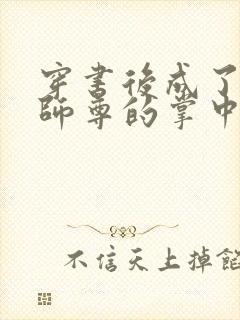 穿書後成了
師尊的掌中
不信天上掉餡